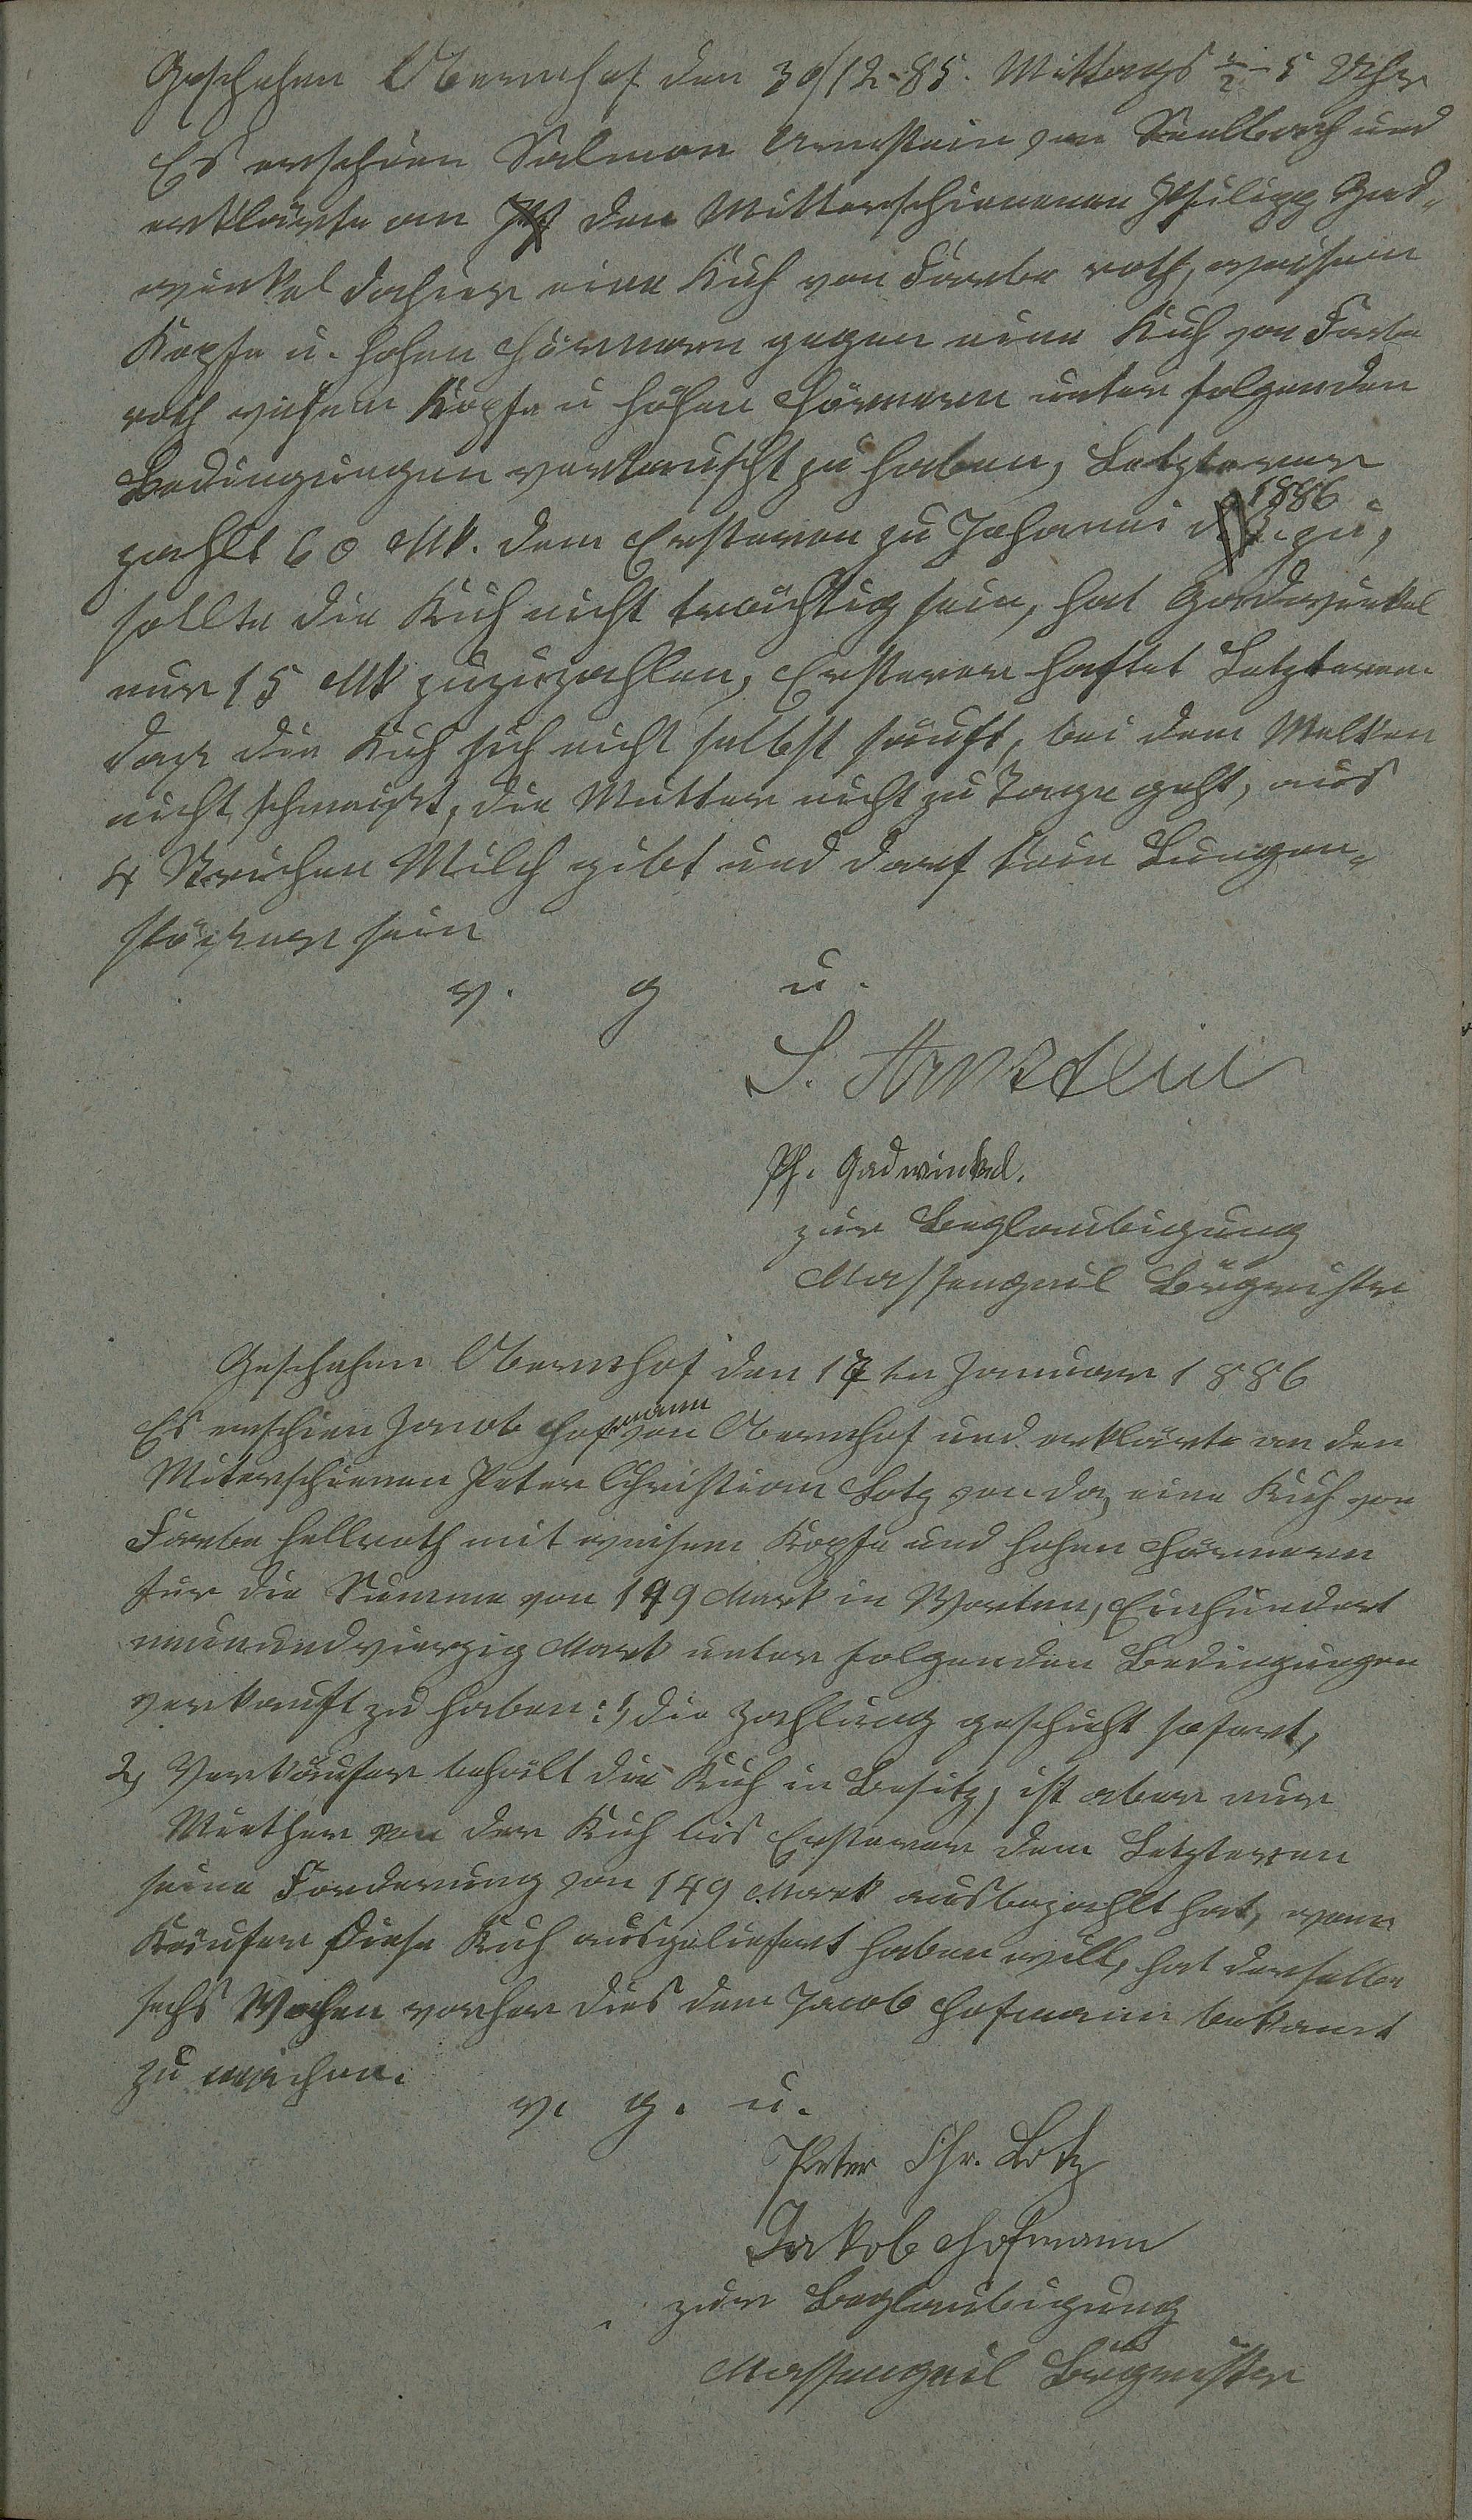 Geschehen Obernhof den 30/12-85. Mittags ½-5 Uhr
Es erschien Salmon Arnstein von Seelbach und
erklärte an den Mitterschienenen Philipp Gad-
winkel dahier eine Kuh von Farbe roth, weisem
Kopfe u. hohen Hörnern gegen eine Kuh von Farbe
roth weisem Kopfe u hohen Hörnern unter folgenden
Bedingungen vertauscht zu haben, Letzterer
zahlt 60 Mk. dem Ersteren zu Johanni 1886 zu,
sollte die Kuh nicht trächtig sein, hat Gadwinkel
nur 15 Mk zuzuzahlen, Ersterer haftet Letzteren
daß die Kuh sich nicht selbst säuft, bei dem Melken
nicht schmeißt, die Mutter nicht zu Tage geht, aus
4 Strichen Milch gibt und darf kein Lungen-
stößer sein
v. g u.
S. Arnstein
Ph. Gadwinkel.
zur Beglaubigung
Massengeil Bügrmister
Geschehen Obernhof den 17ten Januar 1886
Es erschien Jacob Hofmann von Obernhof und erklärte an den
Miterschienen Peter Christian Lotz von da, eine Kuh von
Farbe hellroth mit weisem Kopfe und hohen Hörnern
für die Summe von 149 Mark in Worten, Einhundert
neunundvierzig Mark unter folgenden Bedingungen
verkauft zu haben: 1, die Zahlung geschieht sofort,
2, Verkäufer behält die Kuh in Besitz, ist aber nur
Miether von der Kuh bis Ersterer dem Letzteren
seine Forderung von 149 Mark ausbezahlt hat, wenn
Käufer diese Kuh ausgeliefert haben will, hat derselbe
sechs Wochen vorher dies dem Jacob Hofmann bekannt
zu machen.
v. g. u.
Peter Chr. Lotz
Jakob Hofmann
zur Beglaubigung
Massengeil Bügrmister